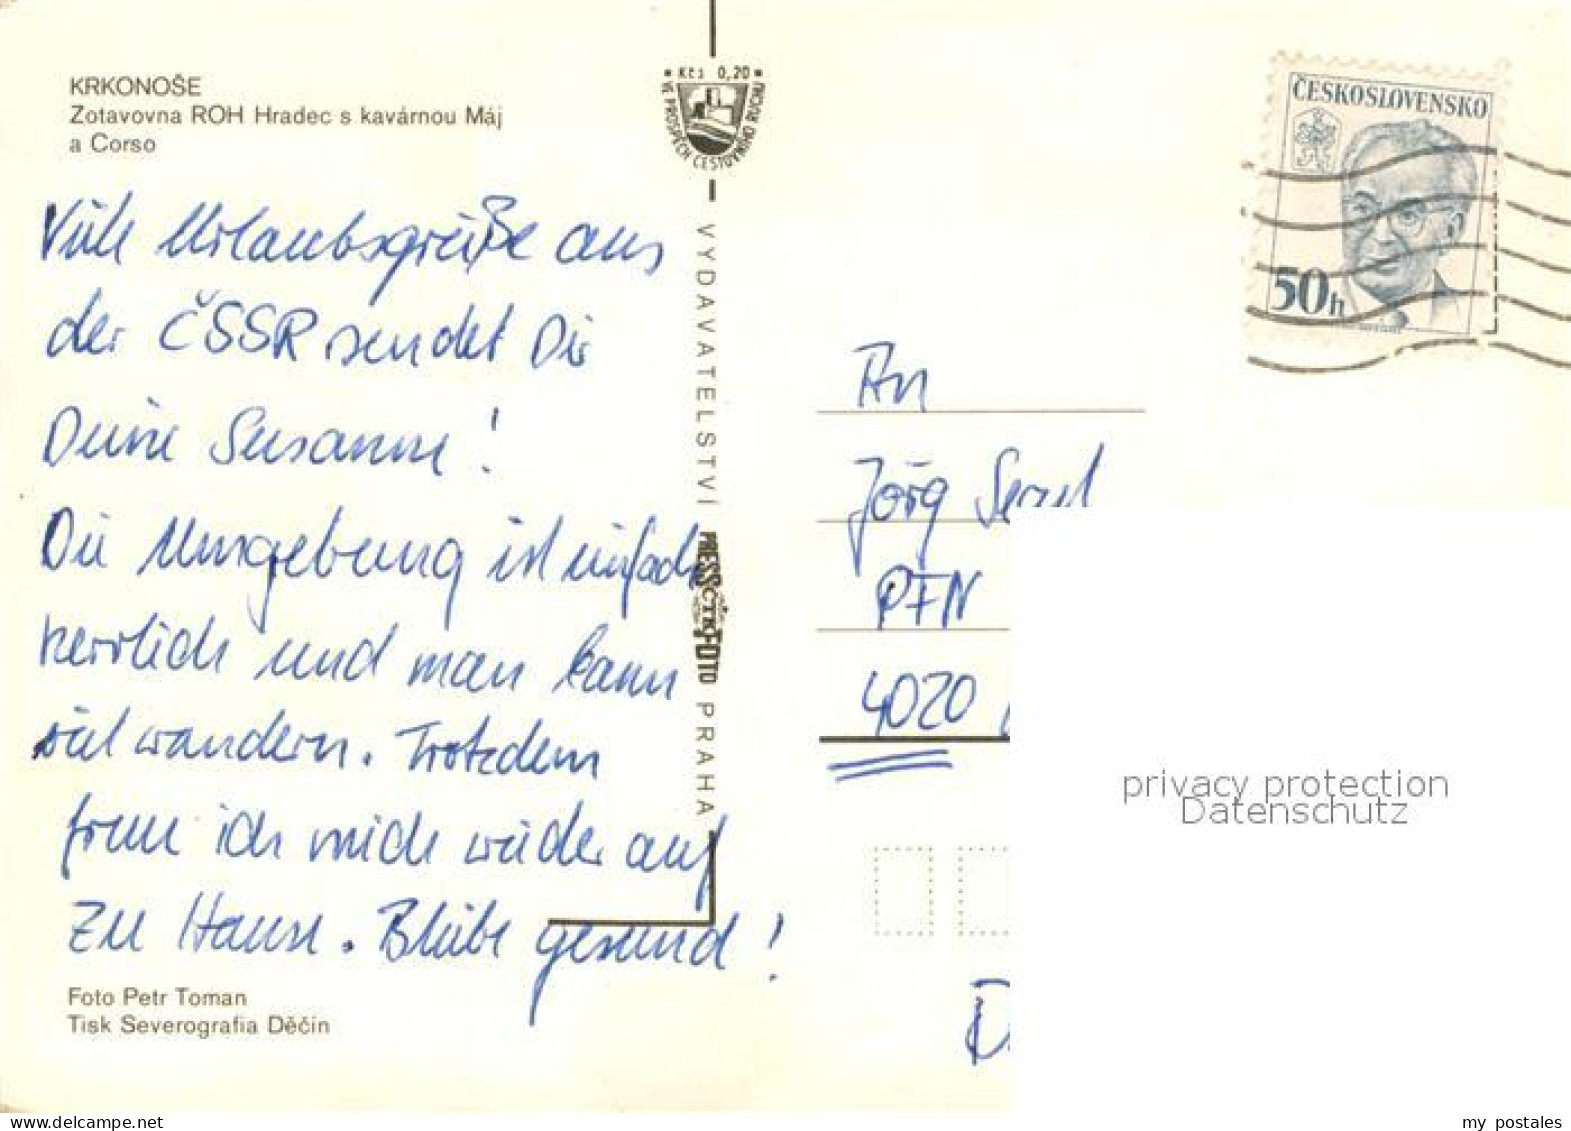 KRKONOŠE
Zotavovna ROH Hradec s kavárnou Máj
a Corso
Kčs 0,20
VE PROSPĚCH CESTOVNÍHO RUCHU
ČESKOSLOVENSKO
50h
Viele Urlaubsgrüße aus
der ČSSR sendet Dir
Deine Susanne!
Die Umgebung ist einfach
herrlich und man kann
viel wandern. Trotzdem
freue ich mich wieder auf
zu Hause. Bleibe gesund!
VYDAVATELSTVÍ PRESSFOTO PRAHA
ČTK
An
Jörg
PFN
4020
privacy protection
Datenschutz
Foto Petr Toman
Tisk Severografia Děčín
delcampe.net
my_postales